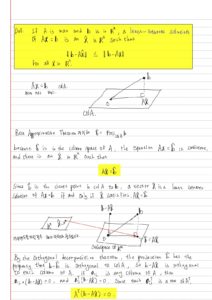 Def. If A is mxn and b is in ℝᵐ, a least-squares solution
of Ax=b is an x̂ in ℝⁿ such that
‖b-Ax̂‖ ≤ ‖b-Ax‖
for all x in ℝⁿ.
Ax = b
Col A
b
0
Ax̂
Col A.
Best Approximation Theorem
because b̂ is in the column space of A, the equation Ax = b̂ is consistent,
and there is an x̂ in ℝⁿ such that
Ax̂ = b̂
Since b̂ is the closest point in Col A to b, a vector x̂ is a least-squares
solution of Ax=b if and only if x̂ satisfies Ax̂ = b̂.
b
b-Ax̂
0
Ax̂
subspace of ℝᵐ
By the Orthogonal decomposition theorem, the projection b̂ has the
property that b-b̂ is orthogonal to Col A, so b-Ax̂ is orthogonal
to each column of A. If aⱼ is any column of A, then
aⱼ·(b-Ax̂) = 0, and aⱼᵀ(b-Ax̂) = 0. Since each aⱼᵀ is a row of Aᵀ,
Aᵀ(b-Ax̂) = 0